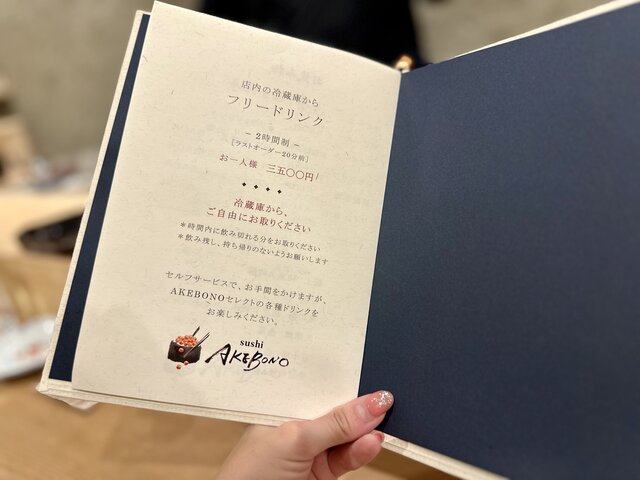 店内の冷蔵庫から
フリードリンク
－2時間制－
[ラストオーダー20分前]
お一人様 三五〇〇円
冷蔵庫から、
ご自由にお取りください
＊時間内に飲み切れる分をお取りください
＊飲み残し、持ち帰りのないようお願いします
セルフサービスで、お手間をかけますが、
AKEBONOセレクトの各種ドリンクを
お楽しみください。
sushi
AKEBONO